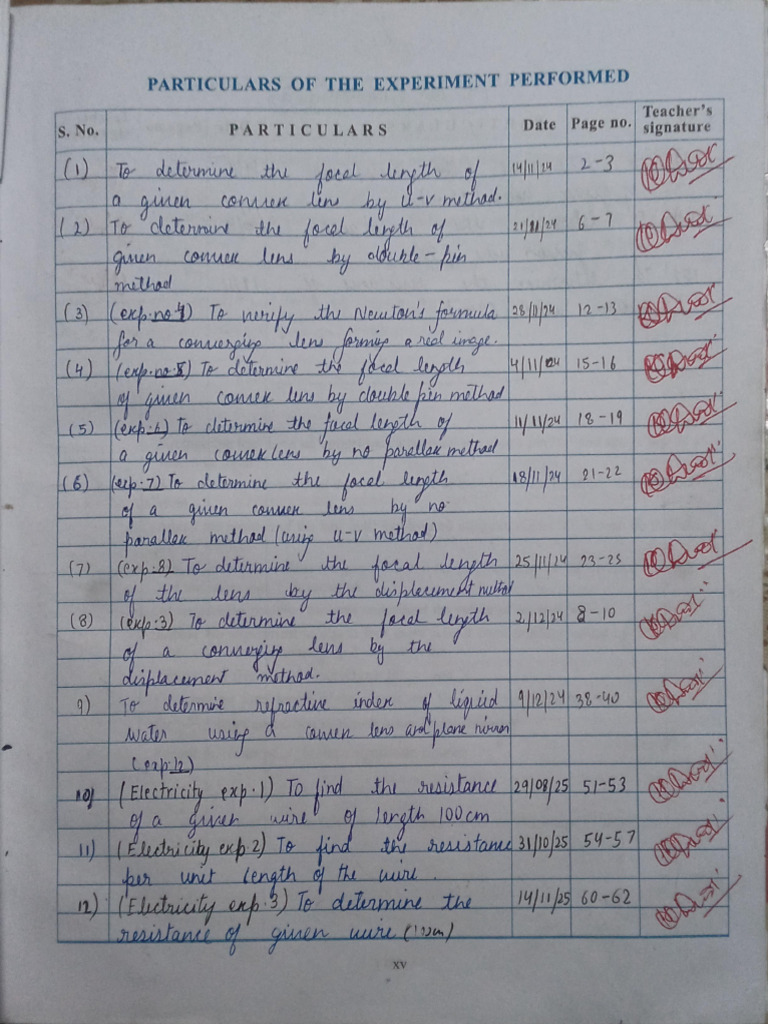 PARTICULARS OF THE EXPERIMENT PERFORMED
S. No. PARTICULARS Date Page no. Teacher's signature
(1) To determine the focal length of 14/11/24 2-3
a given convex lens by u-v method.
(2) To determine the focal length of 21/11/24 6-7
given convex lens by double-pin
method
(3) (exp. no 4) To verify the Newton's formula 28/11/24 12-13
for a converging lens forming a real image.
(4) (exp. no 5) To determine the focal length 4/11/24 15-16
of given convex lens by double pin method
(5) (exp. 6) To determine the focal length of 11/11/24 18-19
a given convex lens by no parallax method
(6) (exp. 7) To determine the focal length 18/11/24 21-22
of a given convex lens by no
parallax method (using u-v method)
(7) (exp. 8) To determine the focal length 25/11/24 23-25
of the lens by the displacement method
(8) (exp. 3) To determine the focal length 2/12/24 8-10
of a converging lens by the
displacement method.
9) To determine refractive index of liquid 9/12/24 38-40
water using a convex lens and plane mirror
(exp. 12)
10) (Electricity exp. 1) To find the resistance 29/08/25 51-53
of a given wire of length 100cm
11) (Electricity exp. 2) To find the resistance 31/10/25 54-57
per unit length of the wire.
12) (Electricity exp. 3) To determine the 14/11/25 60-62
resistance of given wire
xv